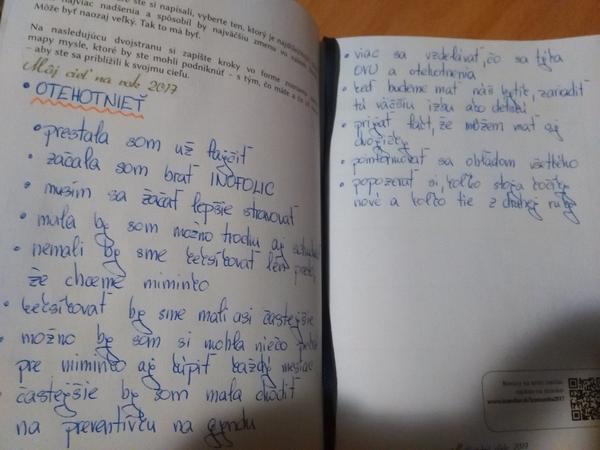 ste si napísali, vyberte ten, ktorý je
najviac nadšenia a spôsobil by najväčšiu zmenu vo
Môže byť naozaj veľký. Tak to má byť.
Na nasledujúcu dvojstranu si zapíšte kroky vo forme
mapy mysle, ktoré by ste mohli podniknúť – s tým, čo máte a čo
– aby ste sa priblížili k svojmu cieľu.
Môj cieľ na rok 2017
• OTEHOTNIEŤ
• prestala som už fajčiť
• začala som brať INOFOLIC
• musím sa začať lepšie stravovať
• mala by som možno trochu aj
• nemali by sme keksíkovať len
že chceme miminko
• keksíkovať by sme mali asi častejšie
• možno by som si mohla niečo
pre miminko aj kúpiť každý mesiac
• častejšie by som mala chodiť
na preventívku na gyndu
• viac sa vzdelávať, čo sa týka
OVU a otehotnenia
• keď budeme mať náš bytík, zariadiť
tú väčšiu izbu ako detskú
• prijať fakt, že môžem mať aj
dvojičky
• poinformovať sa ohľadom všetkého
• popozerať si, koľko stoja kočíky
nové a koľko tie z druhej ruky